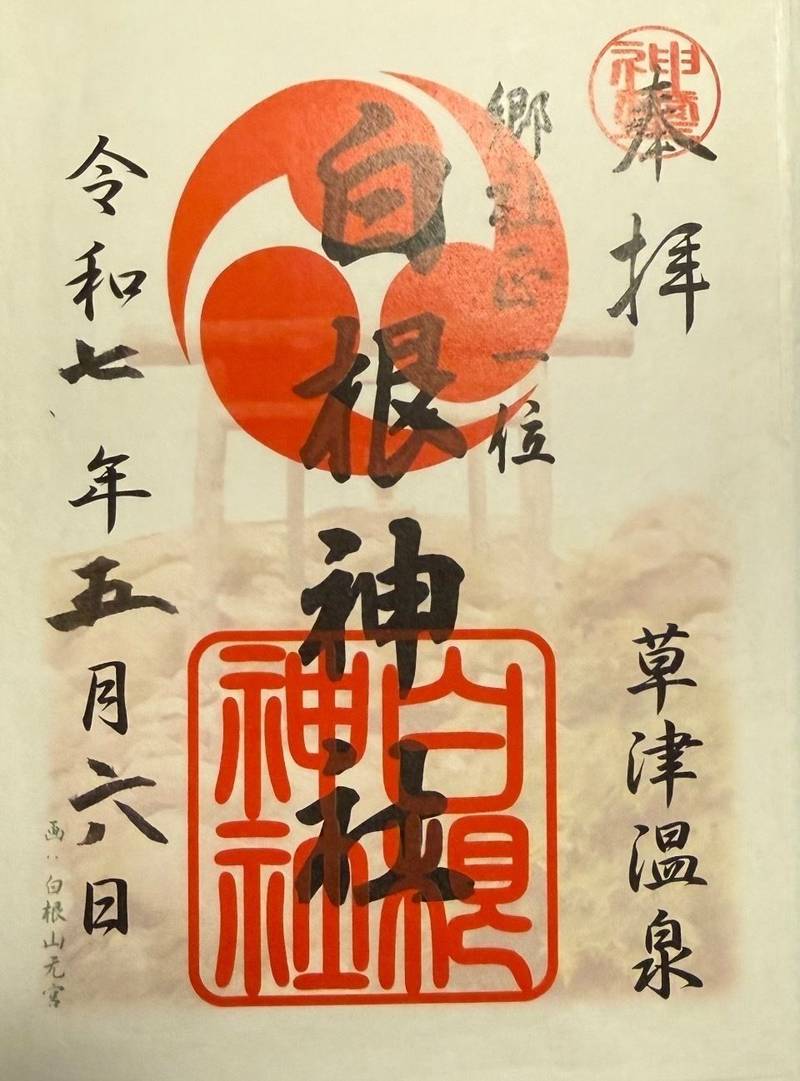 奉拝
草津温泉
郷社正一位
白根神社
白根神社
令和七年五月六日
画:白根山元宮